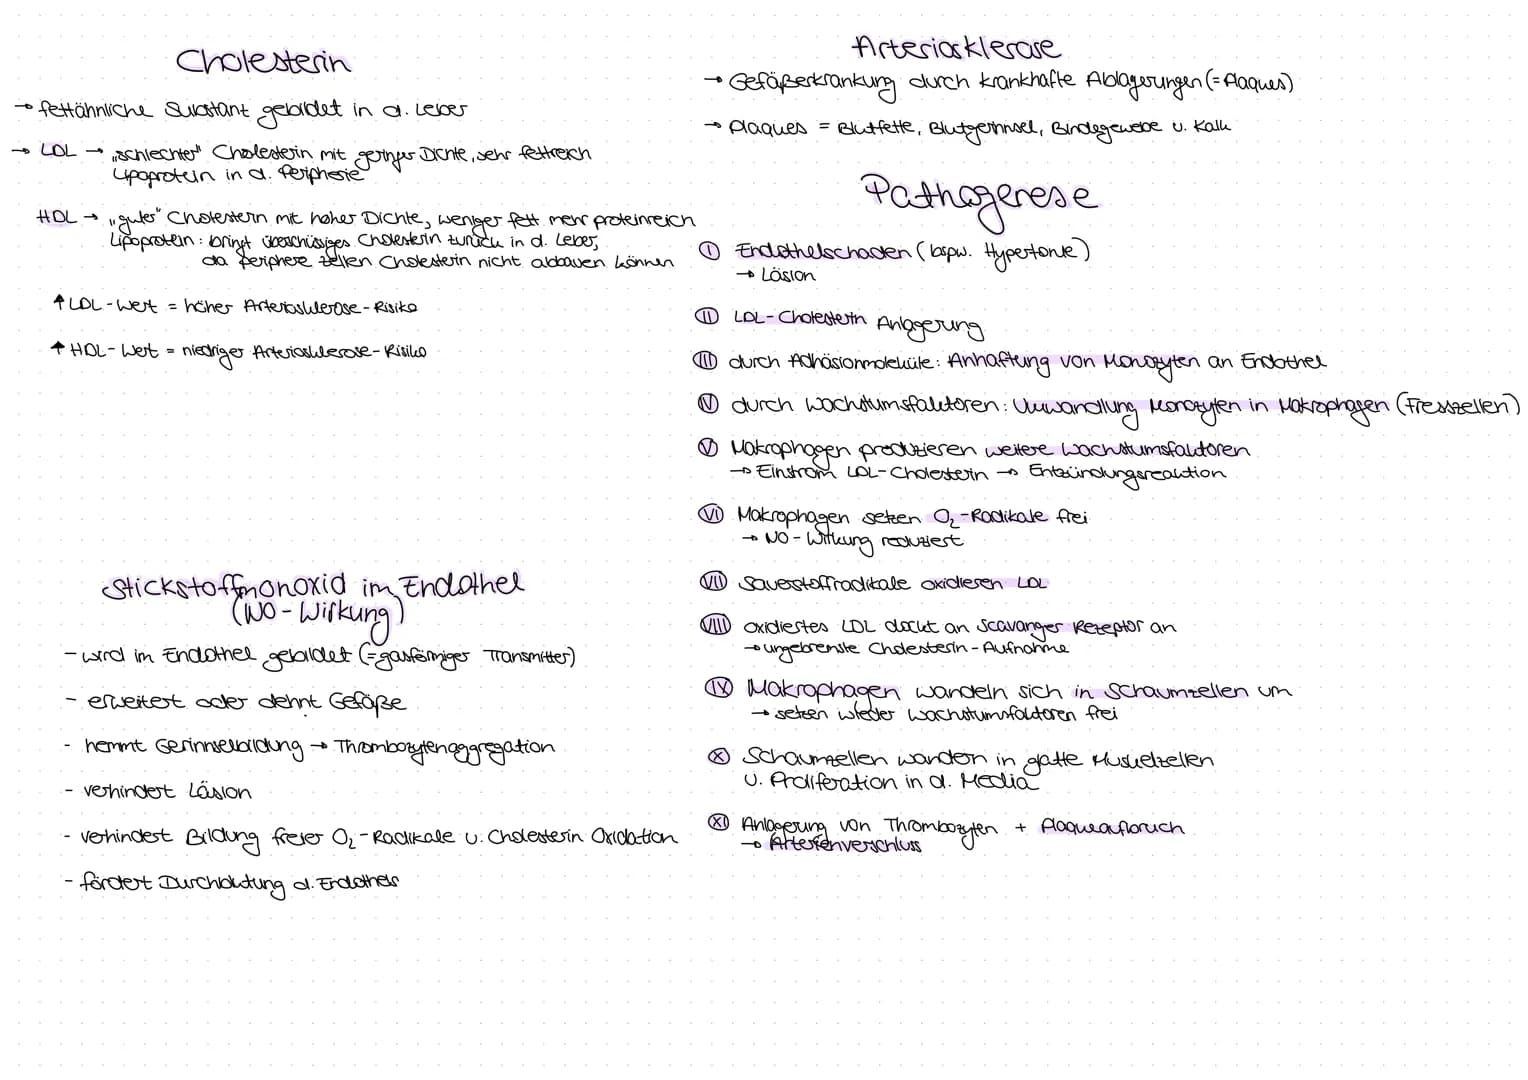 Cholesterin
→ fettähnliche Substanz gebildet in d. Leber
→ LDL → „schlechter" Cholesterin mit geringer Dichte, sehr fettreich
Lipoprotein in d. Peripherie
HDL → „gutes" Cholesterin mit hoher Dichte, weniger fett mehr proteinreich
Lipoprotein: bringt überschüssiges Cholesterin zurück in d. Leber,
da periphere Zellen Cholesterin nicht abbauen können
↑ LDL-Wert = höher Arteriosklerose-Risiko
↑ HDL-Wert = niedriger Arteriosklerose-Risiko
Stickstoffmonoxid im Endothel
(NO-Wirkung)
- wird im Endothel gebildet (=gasförmiger Transmitter)
- erweitert oder dehnt Gefäße
- hemmt Gerinnselbildung → Thrombozytenaggregation
- verhindert Läsion
- verhindert Bildung freier O₂-Radikale u. Cholesterin Oxidation
- fördert Durchblutung d. Endothels
Arteriosklerose
→ Gefäßerkrankung durch krankhafte Ablagerungen (= Plaques)
→ Plaques = Blutfette, Blutgerinnsel, Bindegewebe u. Kalk
Pathogenese
I Endothelschaden (bspw. Hypertonie)
→ Läsion
II LDL-Cholesterin Anlagerung
III durch Adhäsionmoleküle: Anhaftung von Monozyten an Endothel
IV durch Wachstumsfaktoren: Umwandlung Monozyten in Makrophagen (Fresszellen)
V Makrophagen produzieren weitere Wachstumsfaktoren
→ Einstrom LDL-Cholesterin → Entzündungsreaktion
VI Makrophagen setzen O₂-Radikale frei
→ NO-Wirkung reduziert
VII Sauerstoffradikale oxidieren LDL
VIII oxidiertes LDL dockt an Scavanger Rezeptor an
→ ungebremste Cholesterin-Aufnahme
IX Makrophagen wandeln sich in Schaumzellen um
→ setzen wieder Wachstumsfaktoren frei
X Schaumzellen wandern in glatte Muskelzellen
u. Proliferation in d. Media
XI Anlagerung von Thrombozyten + Plaqueaufbruch
→ Arterienverschluss